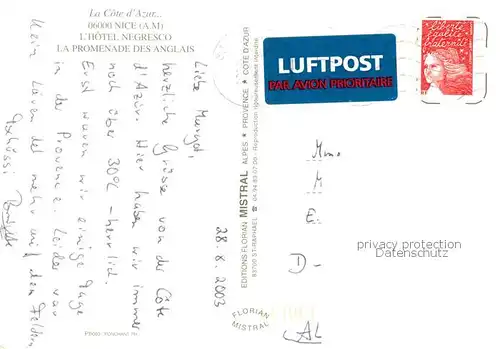 La Côte d'Azur...
06000 NICE (A.M)
L'HÔTEL NEGRESCO
LA PROMENADE DES ANGLAIS
28.8.2003
Liebe Margot,
herzliche Grüsse von der Côte
d'Azur. Hier haben wir immer
noch über 30°C - herrlich.
Erst waren wir einige Tage
in der Provence. Leider war
kein Lavendel mehr auf den Feldern
EDITIONS FLORIAN MISTRAL ALPES ★ PROVENCE ★ COTE D'AZUR
83700 ST-RAPHAEL ☎ 04.94.83.07.00 - Reproduction rigoureusement interdite
FLORIAN
MISTRAL
LUFTPOST
PAR AVION PRIORITAIRE
liberté
égalité
fraternité
Mme
M
E
D-
AL
privacy protection
Datenschutz